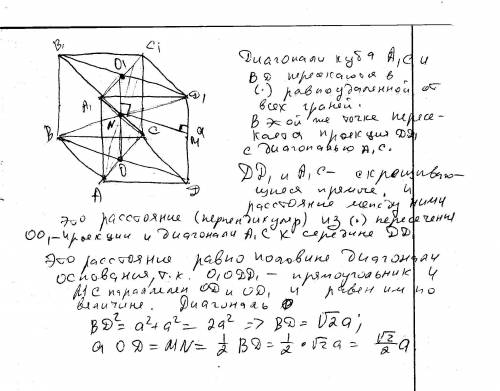 B₁
C₁
O₁
A₁
D₁
N
a
M
B
C
O
A
D
Диагонали куба A₁C и
BD пересекаются в
(·) равноудаленной от
всех граней.
В этой же точке пересе-
кается проекция DD₁
с диагональю A₁C.
DD₁ и A₁C – скрещиваю-
щиеся прямые, и
расстояние между ними
Это расстояние (перпендикуляр) из (·) пересечения
OO₁ – проекции и диагонали A₁C к середине DD₁
Это расстояние равно половине диагонали
основания, т.к. O₁ODD₁ – прямоугольник и
MC параллелен OD и OD₁ и равен им по
величине. Диагональ
BD² = a² + a² = 2a² => BD = √2a;
а OD = MN = 1/2 BD = 1/2 · √2a = √2/2 a